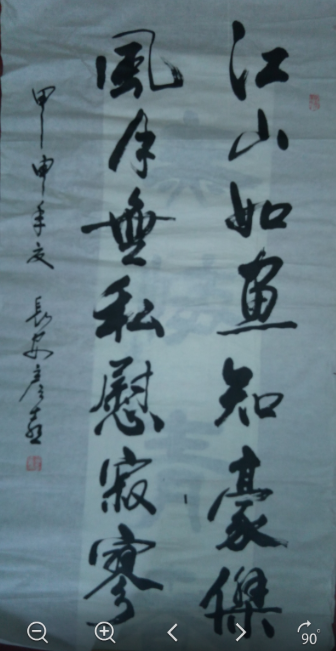 江山如畫知豪傑
風月無私慰寂寥
甲申年夏 長安彦
90°